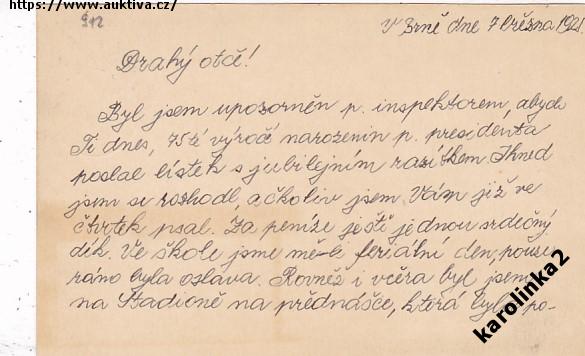 https://www.auktiva.cz/
912
V Brně dne 7 března 1925.
Drahý otče!
Byl jsem upozorněn p. inspektorem, abych
Ti dnes, 75té výročí narozenin p. presidenta
poslal lístek s jubilejním razítkem. Ihned
jsem se rozhodl, ačkoliv jsem Vám již ve
čtvrtek psal. Za peníze ještě jednou srdečný
dík. Ve škole jsme měli feriální den, pouze
ráno byla oslava. Rovněž i včera byl jsem
na Stadioně na přednášce, která byla po-
karolinka2